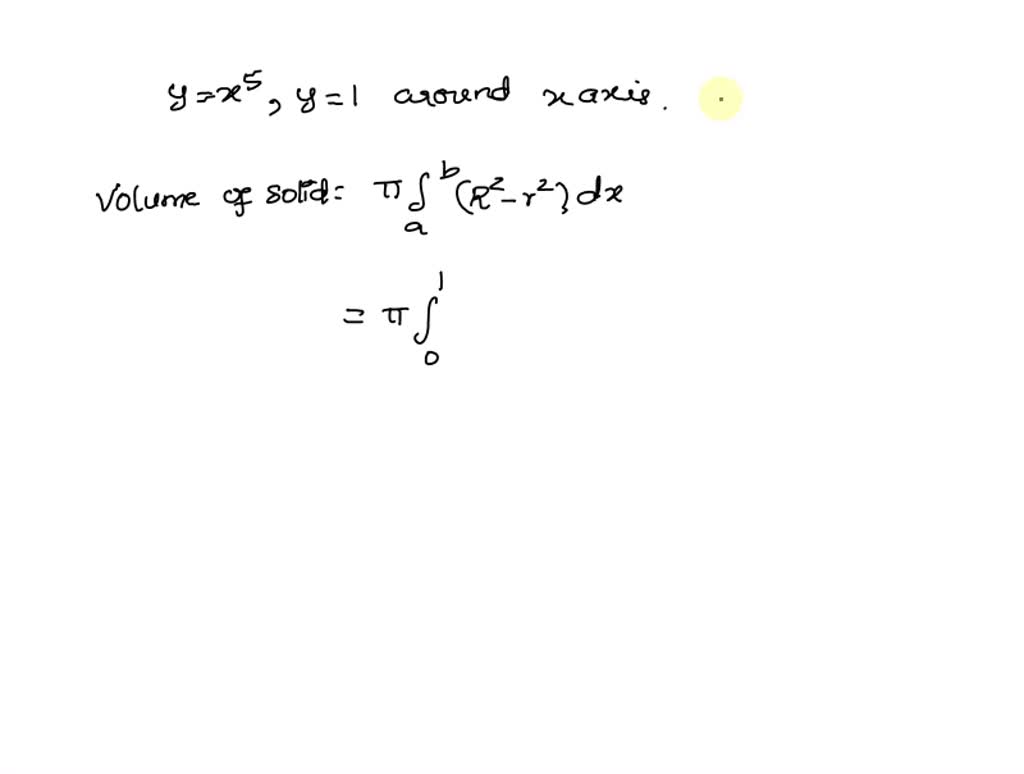 y=x⁵, y=1 around x axis.
Volume of solid= π∫ₐᵇ(R²-r²)dx
= π∫₀¹